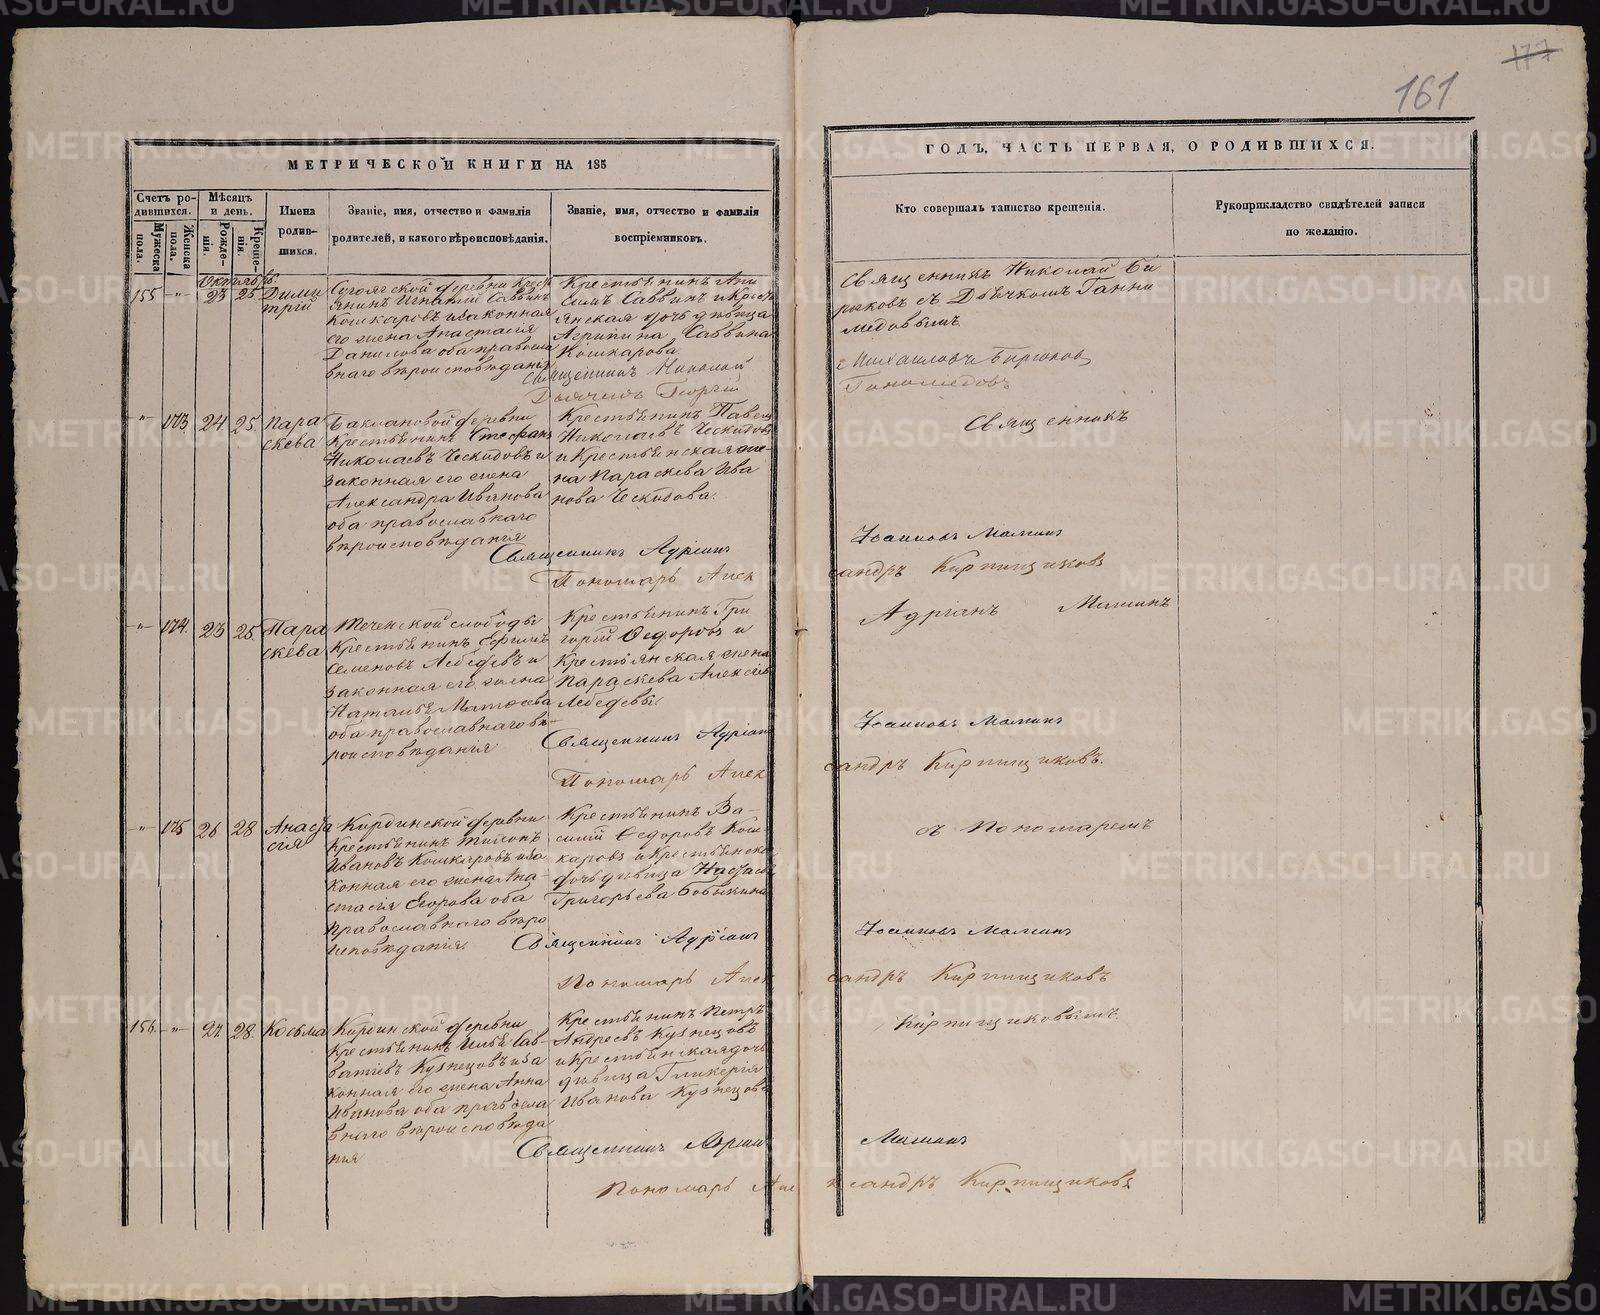 161
177
МЕТРИЧЕСКОЙ КНИГИ НА 185
ГОДЪ, ЧАСТЬ ПЕРВАЯ, О РОДИВШИХСЯ.
Счетъ ро-
дившихся.
Мужеска
пола.
Женска
пола.
Мѣсяцъ
и день.
Рожде-
нія.
Креще-
нія.
Имена
родив-
шихся.
Званіе, имя, отчество и фамилія
родителей, и какого вѣроисповѣданія.
Званіе, имя, отчество и фамилія
воспріемниковъ.
Кто совершалъ таинство крещенія.
Рукоприкладство свидѣтелей записи
по желанію.
Октябрь
155 -"- 23 25 Дими
трій
деревни Крест
янинъ Игнатій Саввинъ
Кошкаровъ и законная
его жена Анастасія
Данилова оба правосла
внаго вѣроисповѣданія
Крестьянинъ Ани
симъ Саввинъ и Крест
янская дочь дѣвица
Агрипина Саввина
Кошкарова.
Священникъ Николай Би
рюковъ съ Дьячкомъ Ганни
медовымъ.
Священникъ Николай
Михаиловъ Бирюков
Дьячекъ Георгій
Ганимедовъ
-"- 173 24 25 Пара
скева
Баклановой деревни
Крестьянинъ Стефанъ
Николаевъ Ческидовъ и
законная его жена
Александра Иванова
оба православнаго
вѣроисповѣданія
Крестьянинъ Павелъ
Николаевъ Ческидовъ
и Крестьянская же-
на Параскева Ива
нова Ческидова.
Священникъ
Священникъ Адріанъ
Іоанновъ Маминъ
Пономарь Алек
сандръ Кирпищиковъ
-"- 174 23 25 Пара
скева
Теченской слободы
Крестьянинъ Ефимъ
Семеновъ Лебедевъ и
законная его жена
Наталья Матѳеева
оба православнаго вѣ-
роисповѣданія
Крестьянинъ Гри
горій Ѳедоровъ и
Крестьянская жена
Параскева Алексѣев
Лебедевы
Адріанъ Маминъ
Священникъ Адріанъ
Іоанновъ Маминъ
Пономарь Алек
сандръ Кирпищиковъ.
-"- 175 26 28 Анаста
сія
Кирдинской деревни
Крестьянинъ Тихонъ
Ивановъ Кошкаровъ и за
конная его жена Ана-
стасія Егорова оба
православнаго вѣро
исповѣданія
Крестьянинъ Ва-
силій Ѳедоровъ Кош
каровъ и Крестьянска
дочь дѣвица Настась
Григорьева Бобыкина
съ Пономаремъ
Священникъ Адріанъ
Іоанновъ Маминъ
Пономарь Алек
сандръ Кирпищиковъ
156 -"- 27 28 Косьма
Кирдинской деревни
Крестьянинъ Илья Сав-
ватіевъ Кузнецовъ и за
конная его жена Анна
Иванова оба православ
внаго вѣроисповѣда
нія
Крестьянинъ Петръ
Андреевъ Кузнецовъ
и Крестьянская дочь
дѣвица Гликерія
Иванова Кузнецова
Кирпищиковымъ
Священникъ Адріанъ
Маминъ
Пономарь Алек
сандръ Кирпищиковъ
METRIKI.GASO-URAL.RU